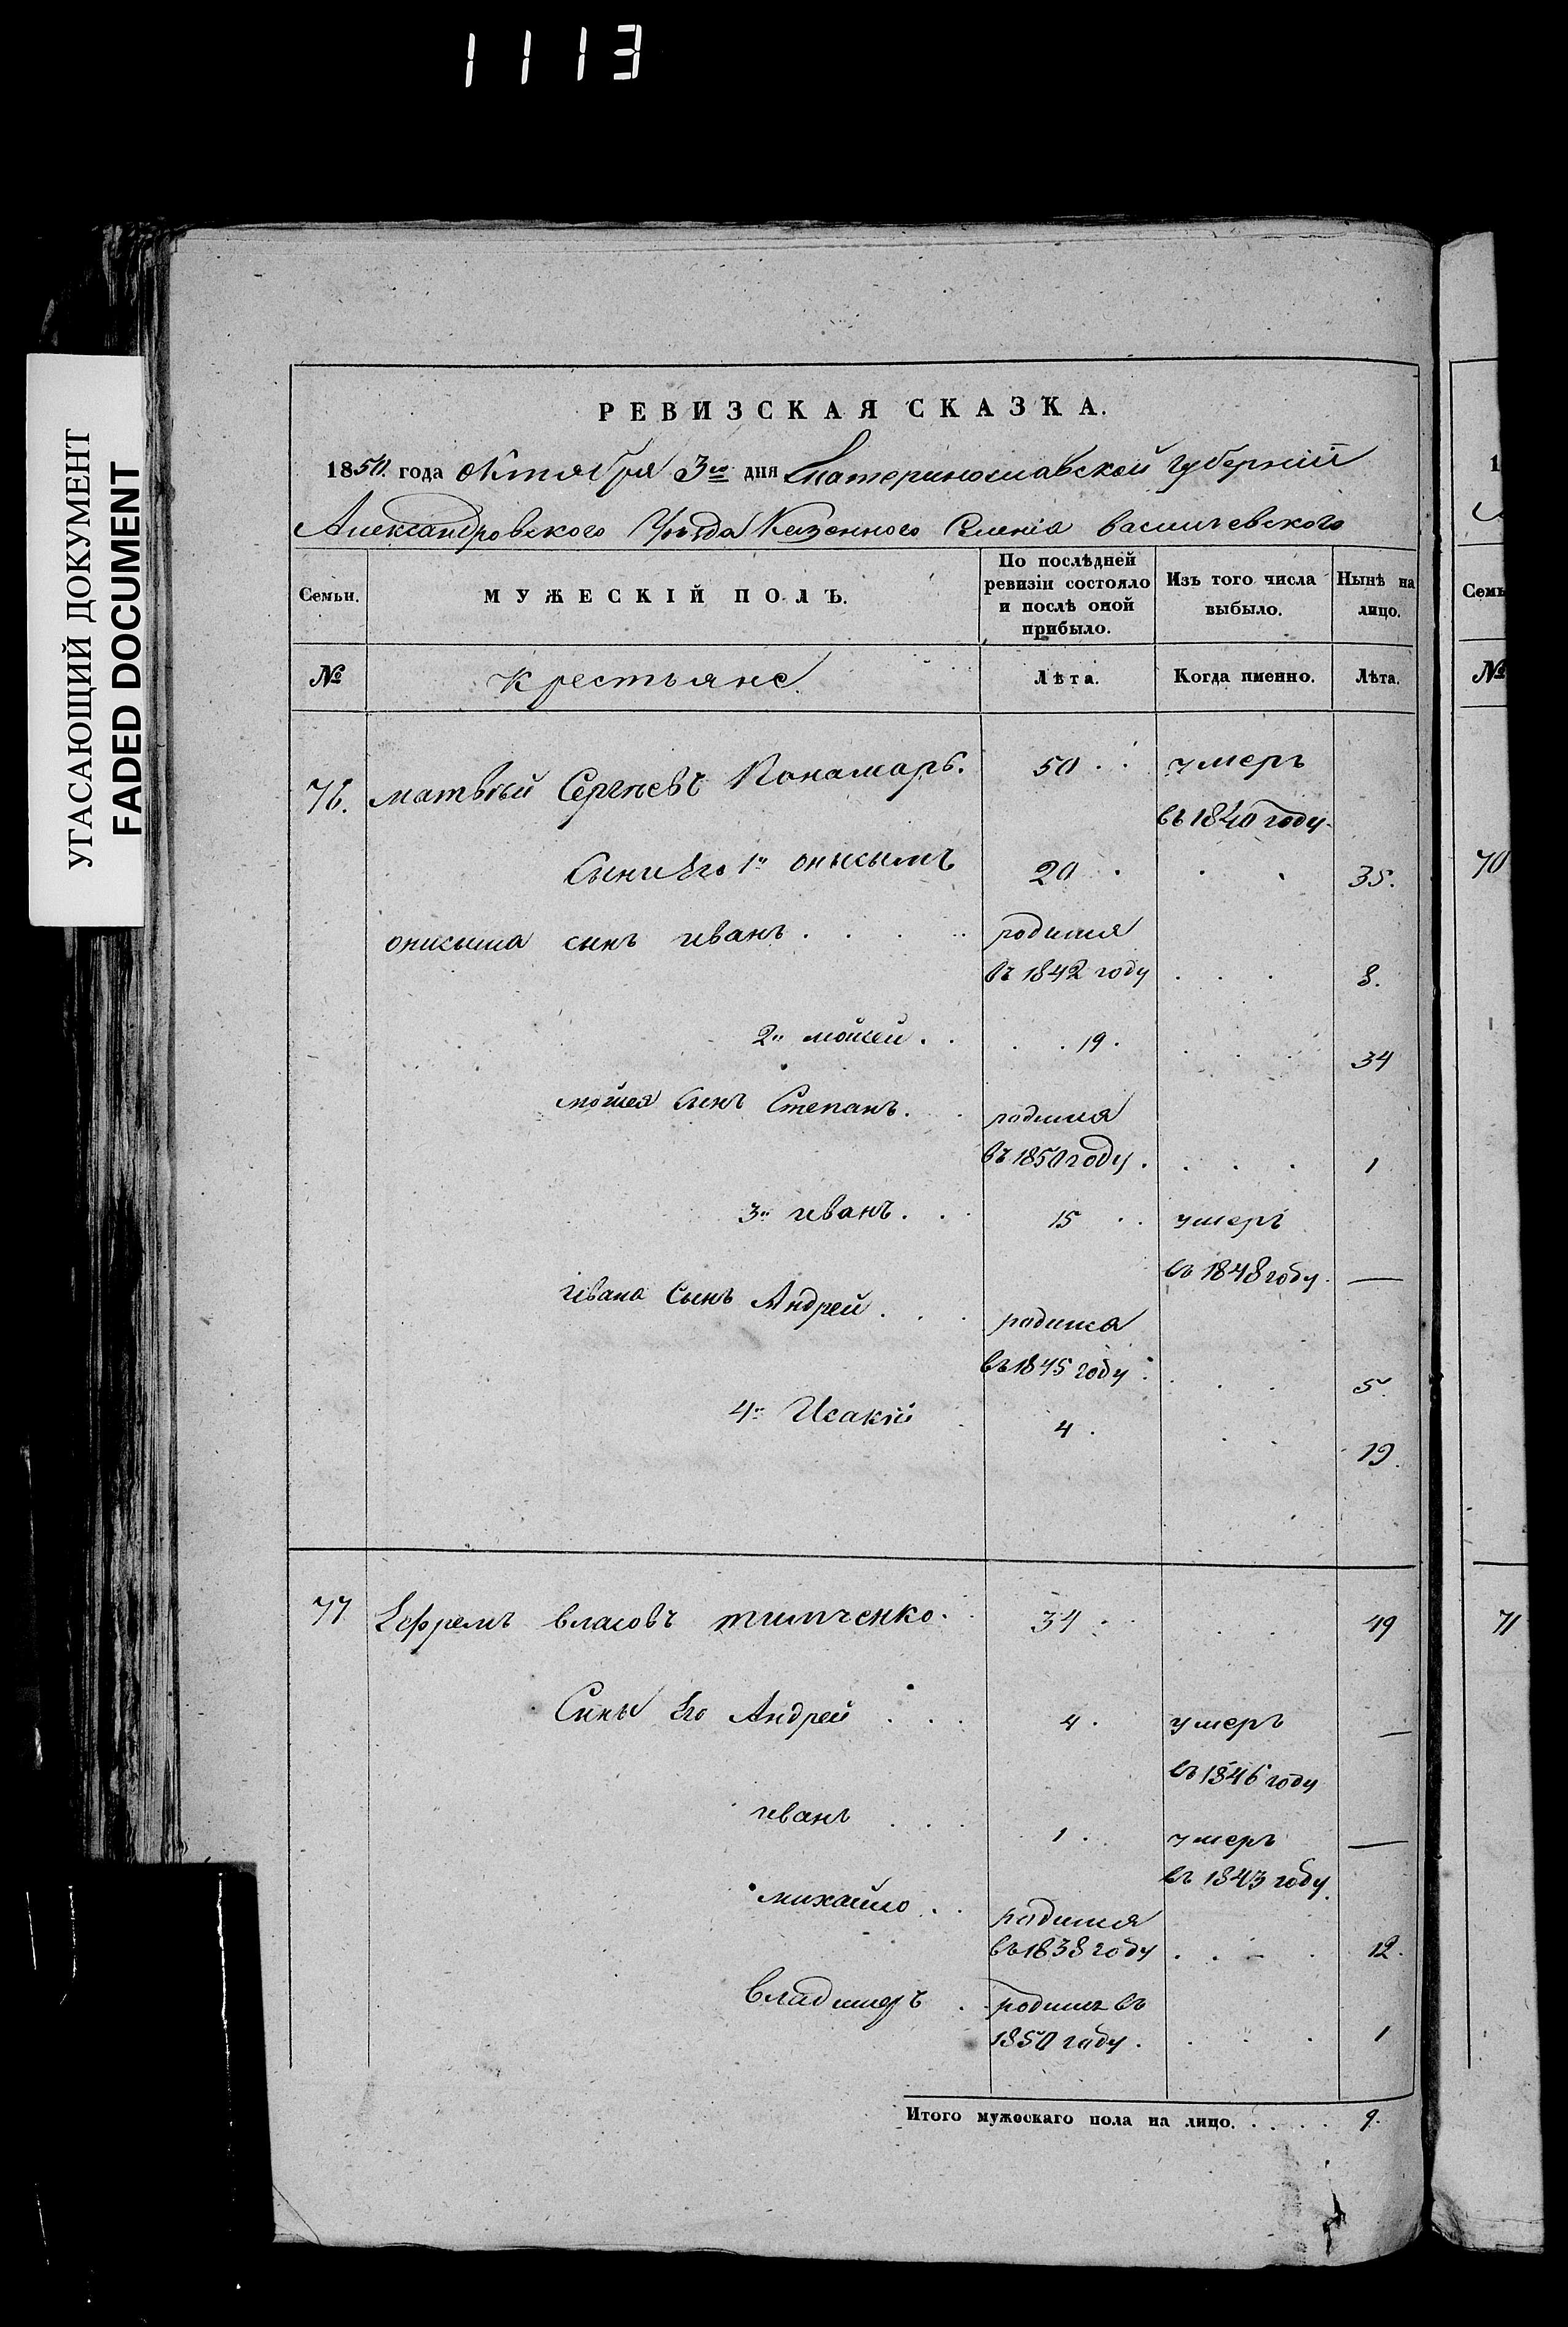 1113
УГАСАЮЩИЙ ДОКУМЕНТ
FADED DOCUMENT
РЕВИЗСКАЯ СКАЗКА.
1850. года октября 3го дня Екатеринославской губернии
Александровского Уѣзда Казенного Селенія васильевского
Семьи. МУЖЕСКІЙ ПОЛЪ. По послѣдней ревизіи состояло и послѣ оной прибыло. Изъ того числа выбыло. Нынѣ на лицо.
№ крестьяне Лѣта. Когда именно. Лѣта.
76. матвѣй Сергѣевъ Понамарь. 50 умеръ
въ 1840 году.
Сыни Его 1й онисымъ 20 35.
онисыма сынъ иванъ родился
въ 1842 году 8.
2й мойсей 19. 34
мойсея Сынъ Степанъ родился
въ 1850 году. 1
3й иванъ 15 умеръ
въ 1848 году. —
ивана Сынъ Андрей родился
въ 1845 году 5
4й Исакій 4. 19.
77 Ефремъ власовъ тимченко. 34 49
Сины Его Андрей 4. умеръ —
въ 1846 году
иванъ 1. умеръ —
въ 1843 году.
михайло родился
въ 1838 году 12.
владимеръ родился въ
1850 году. 1
Итого мужескаго пола на лицо. 9.
1
Семь
№
70
71